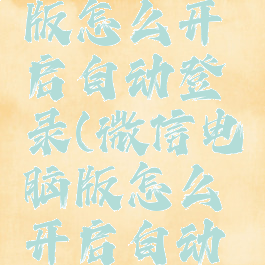 版怎么开
启自动登
录(微信电
脑版怎么
开启自动